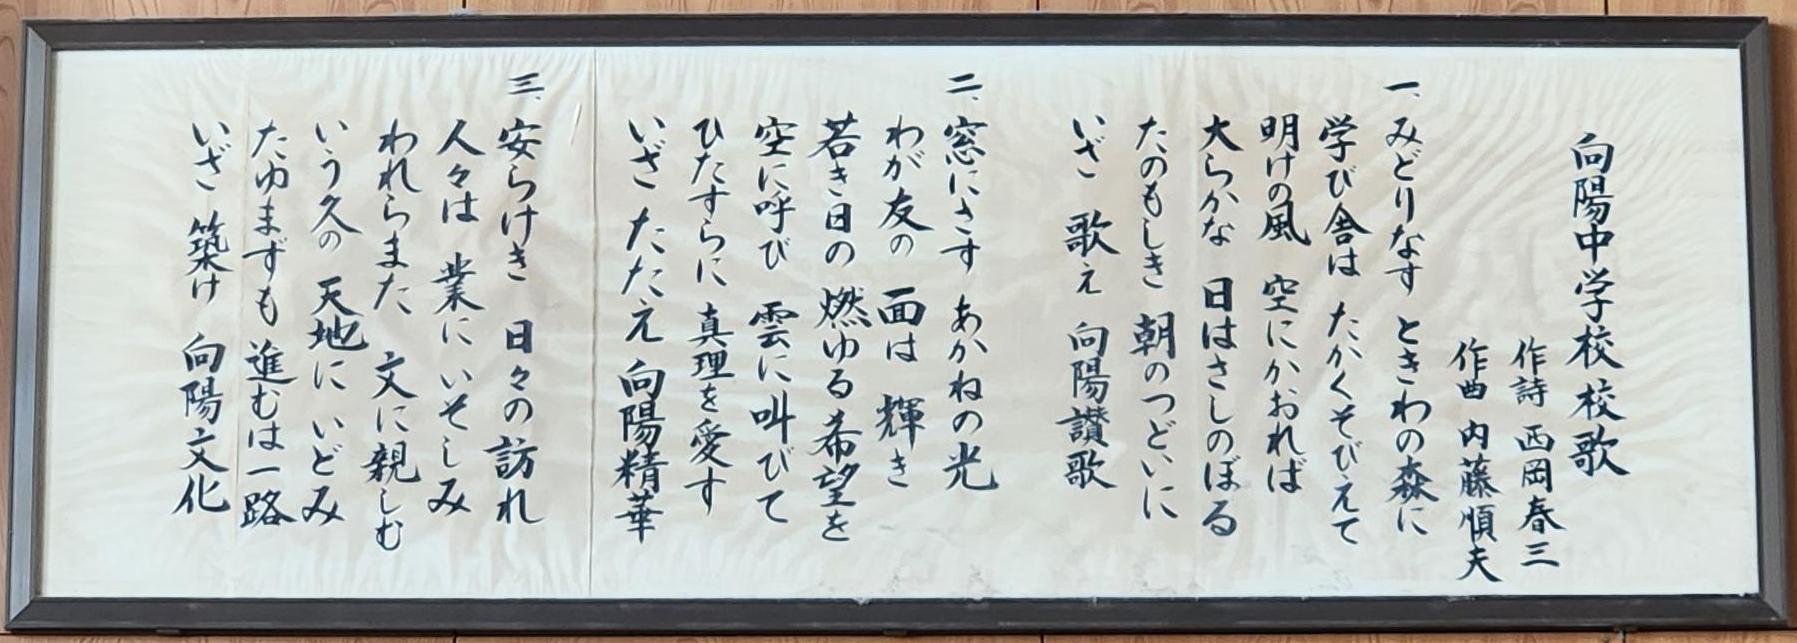 向陽中学校 校歌
作詩 西岡春三
作曲 内藤順夫
一、みどりなす ときわの森に
学び舎は たかくそびえて
明けの風 空にかおれば
大らかな 日はさしのぼる
たのもしき 朝のつどいに
いざ 歌え 向陽讃歌
二、窓にさす あかねの光
わが友の 面は 輝き
若き日の 燃ゆる希望を
空に呼び 雲に叫びて
ひたすらに 真理を愛す
いざ たたえ 向陽精華
三、安らけき 日々の訪れ
人々は 業に いそしみ
われらまた 文に親しむ
いう久の 天地に いどみ
たゆまずも 進むは一路
いざ 築け 向陽文化